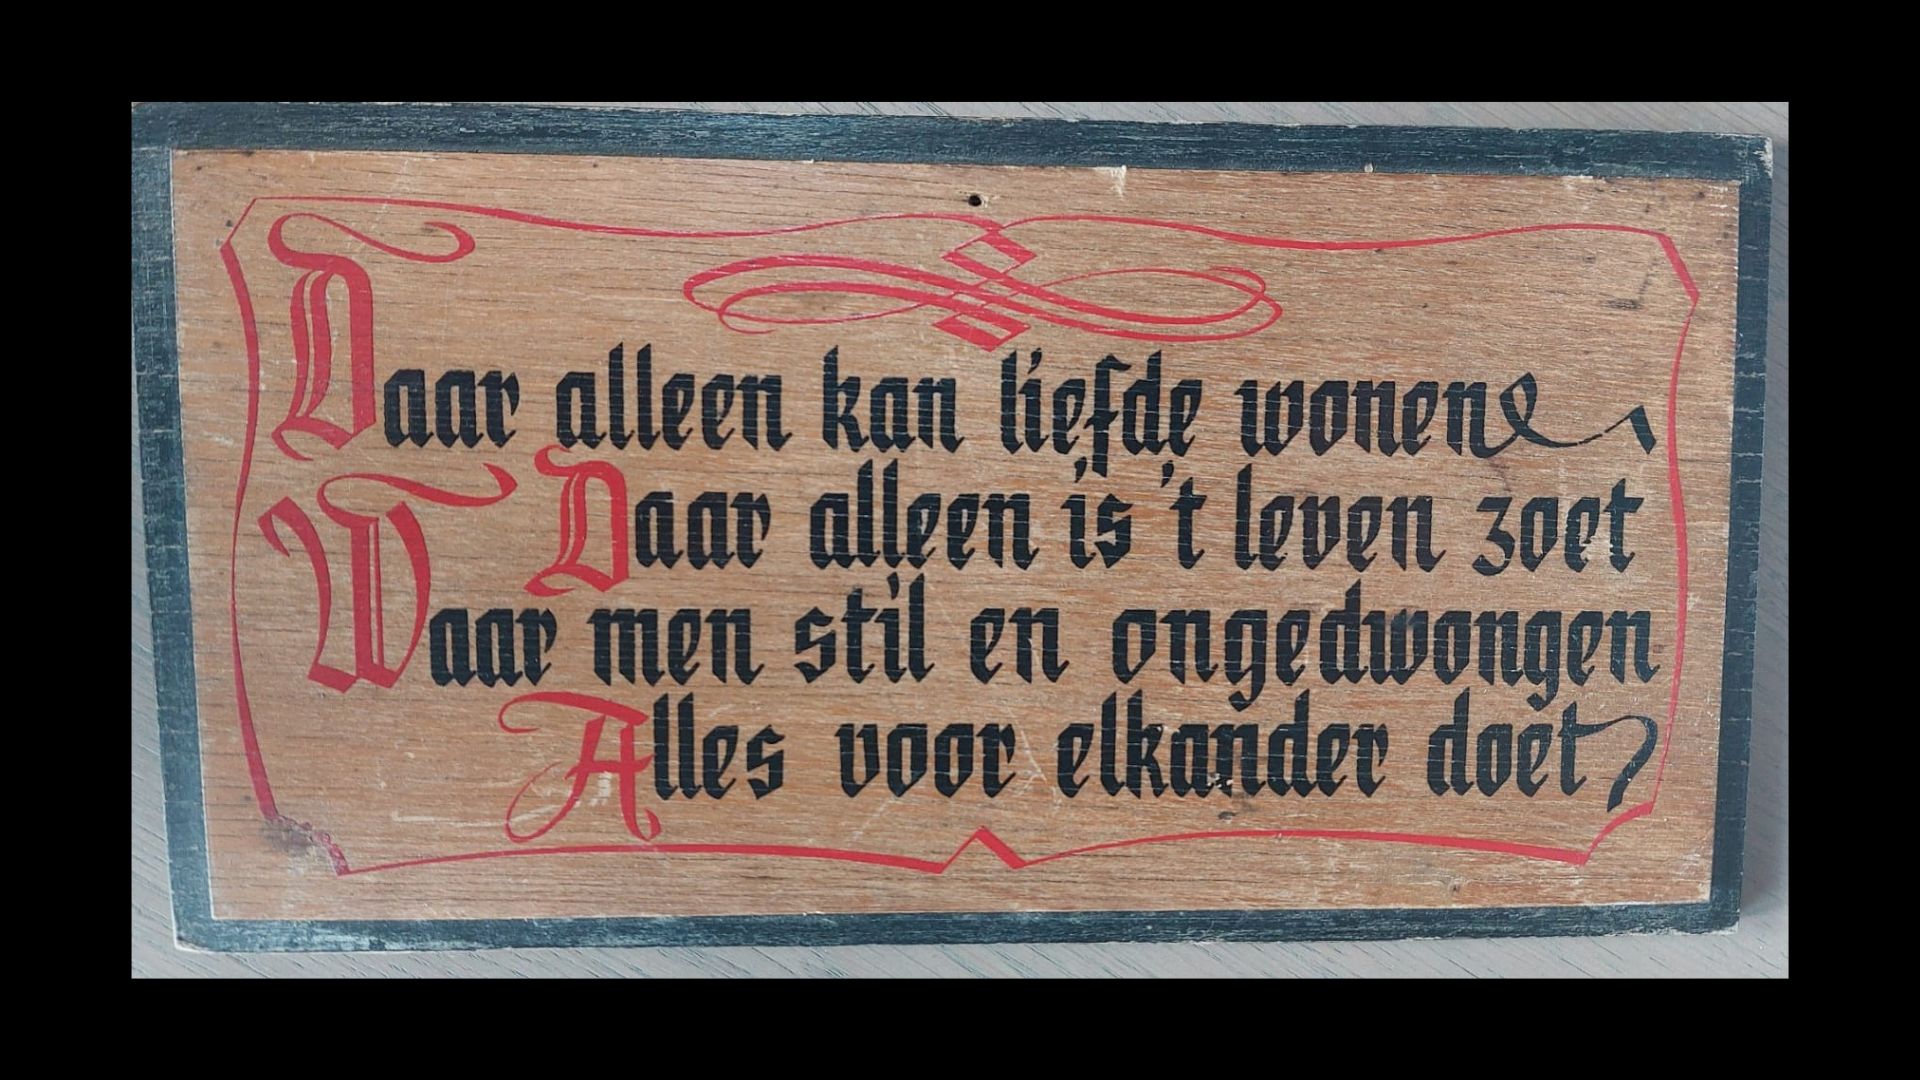 Daar alleen kan liefde wonen
Daar alleen is 't leven zoet
Waar men stil en ongedwongen
Alles voor elkander doet